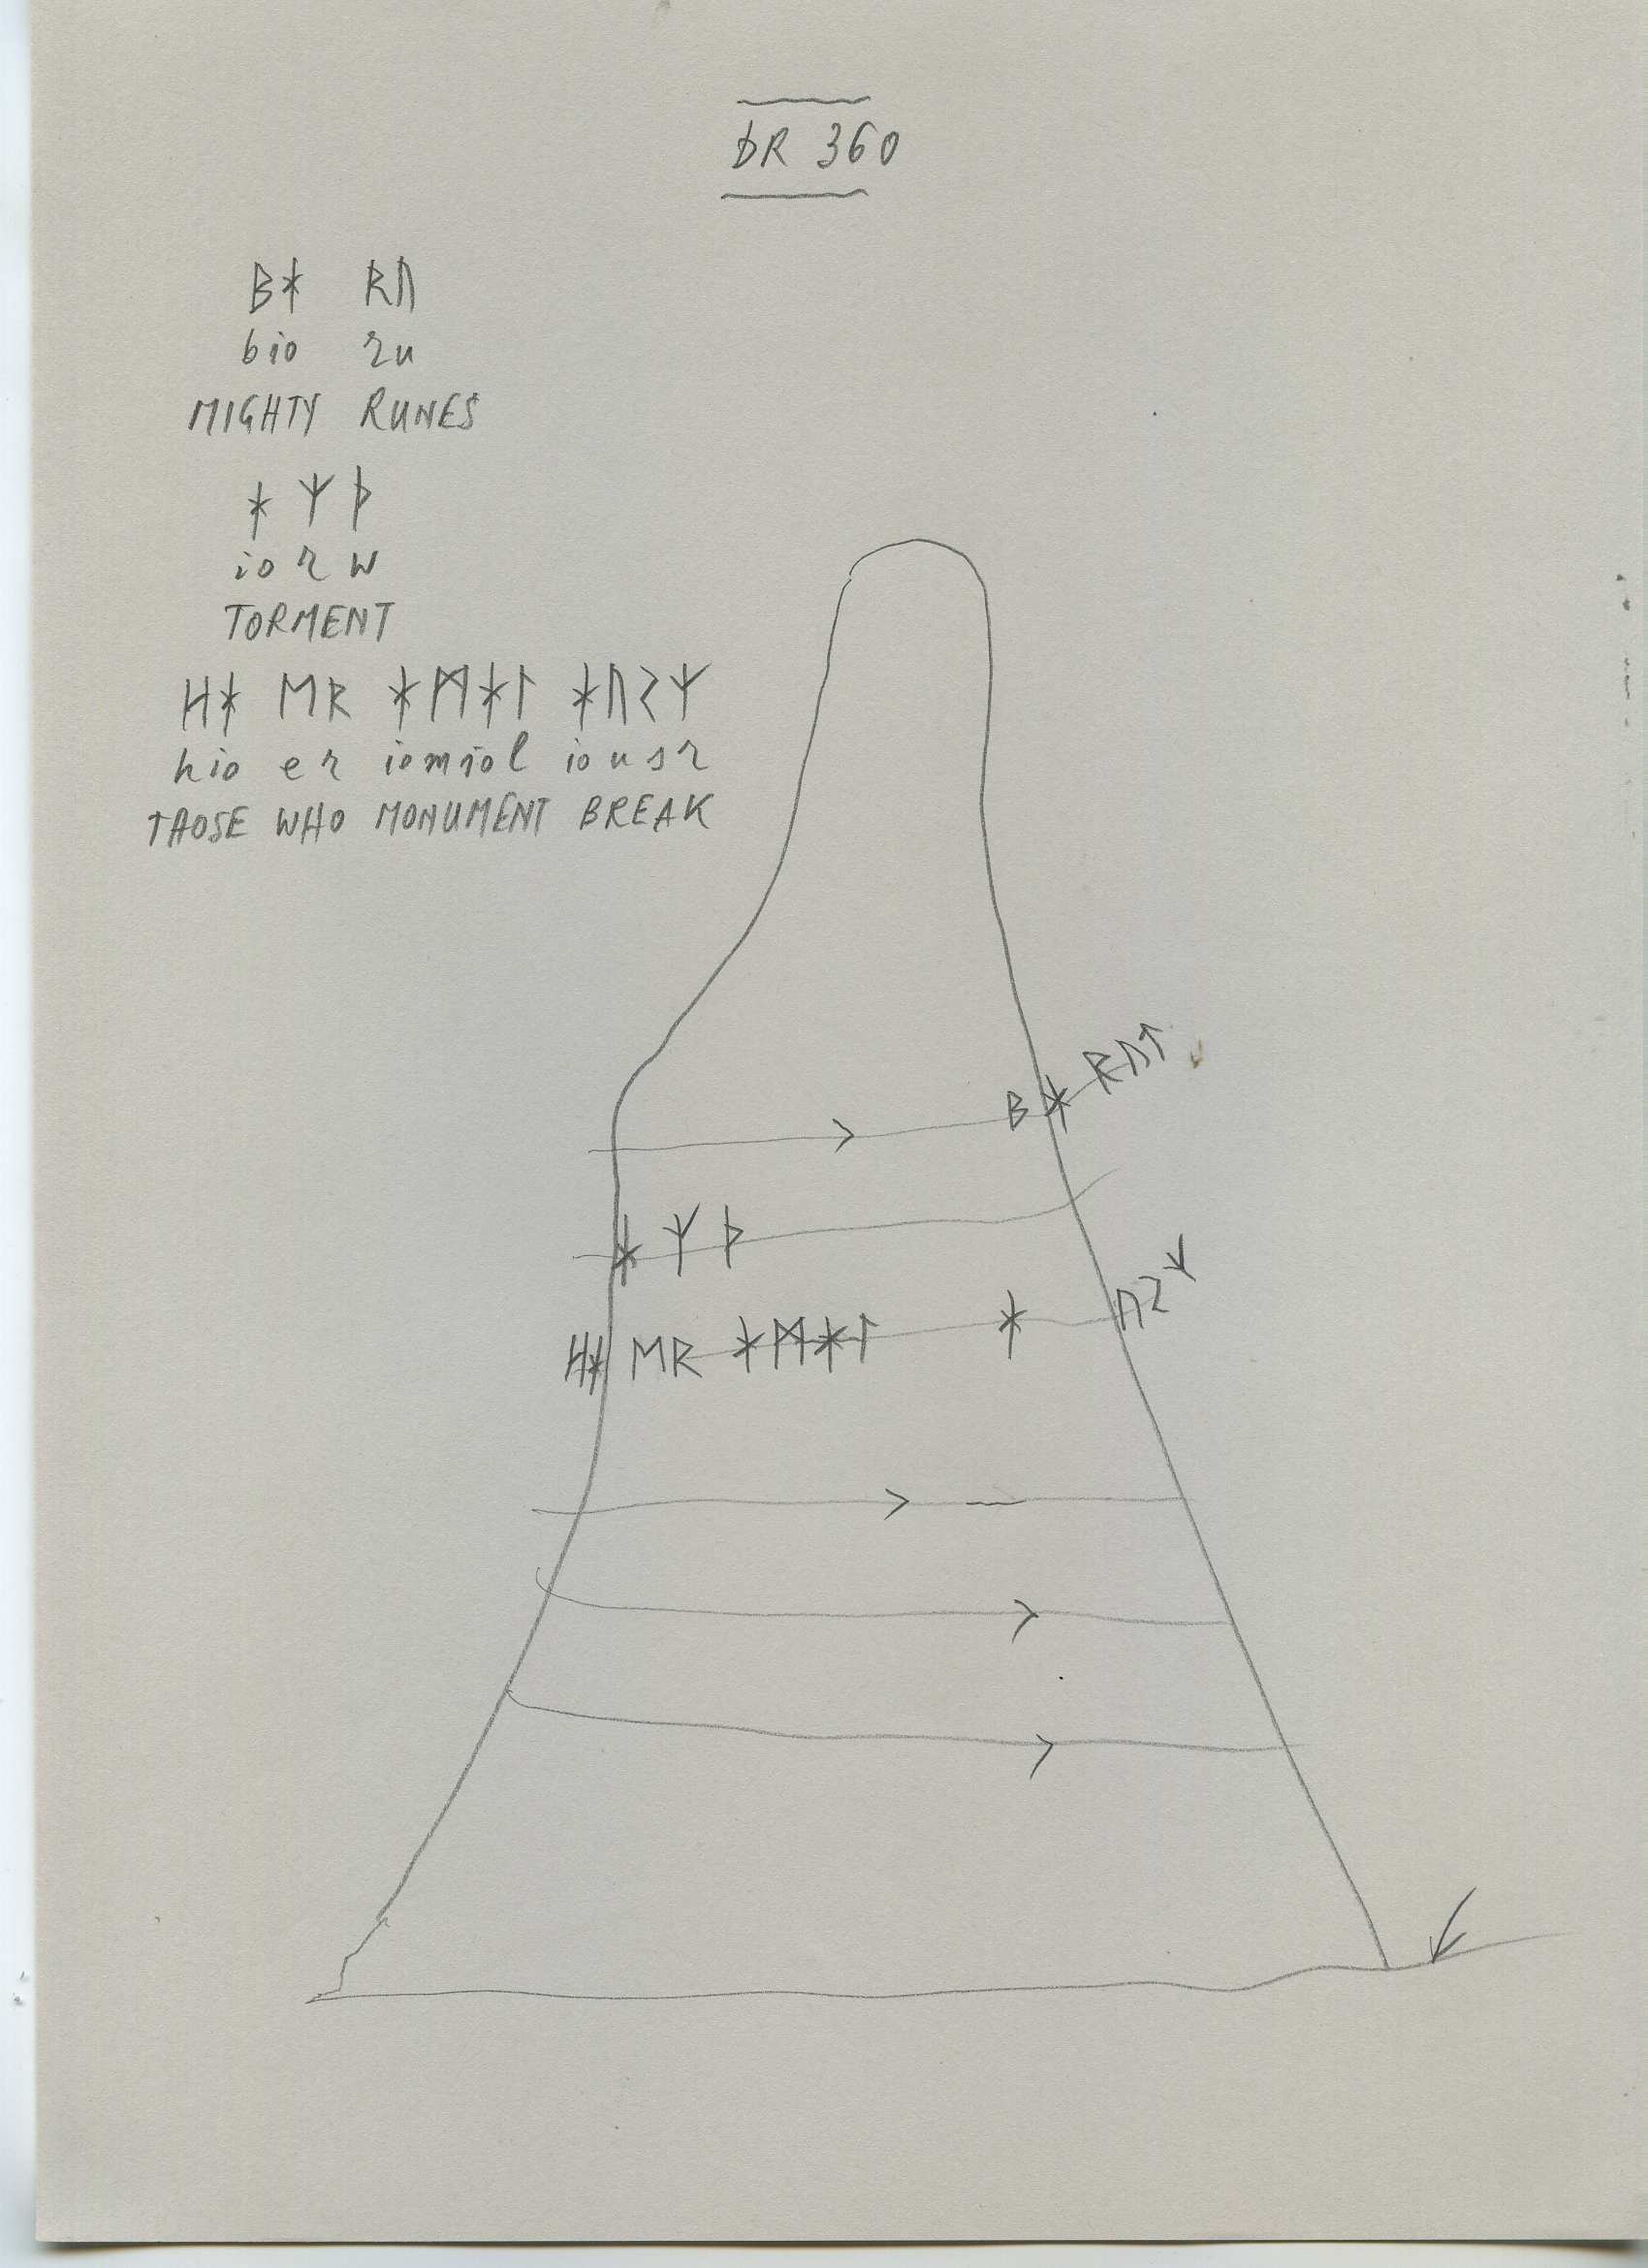 DR 360
ᛒᛡ ᚱᚢ
bio ru
MIGHTY RUNES
ᛡ ᛉ ᚦ
io r w
TORMENT
ᚺᛡ ᛖᚱ ᛡᛗᛡᛚ ᛡᚢᛊᛉ
hio er iomiol iousr
THOSE WHO MONUMENT BREAK
ᛒ ᛡ ᚱᚢᛏ
ᛡ ᛉ ᚦ
ᚺᛡ ᛖᚱ ᛡᛗᛡᛚ ᛡ ᚢᛊᛉ